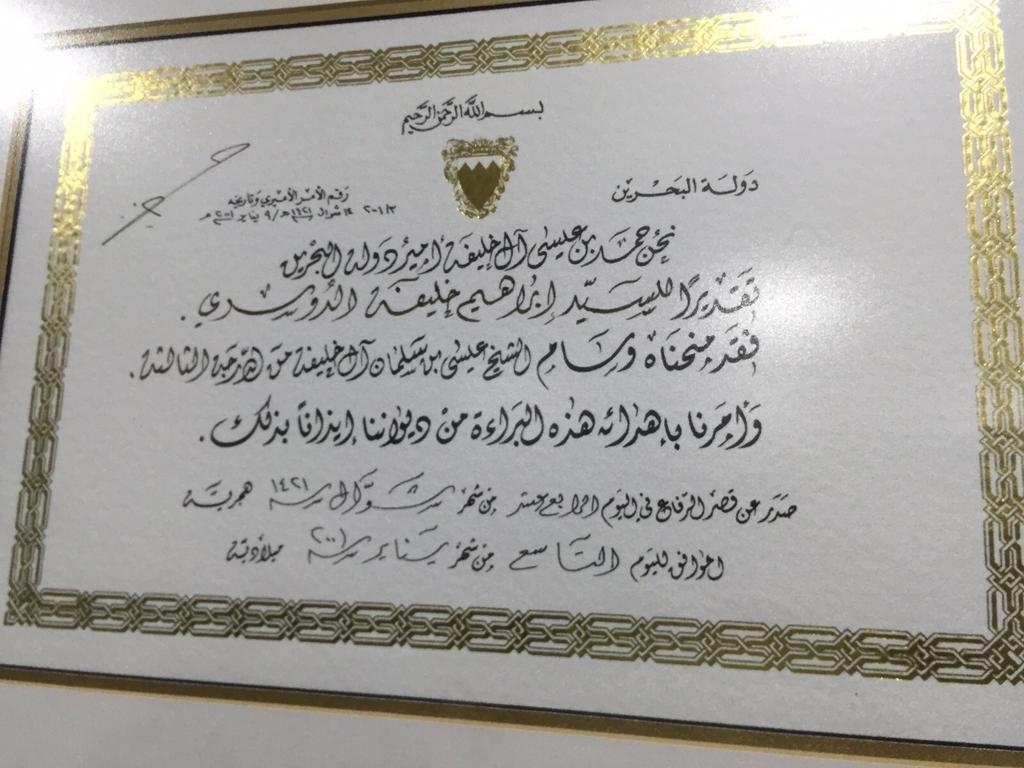 بسم الله الرحمن الرحيم
دولة البحرين
رقم الأمر الأميري وتاريخه
٢٠٠١/٢ ١٤ شوال ١٤٢١هـ / ٩ يناير ٢٠٠١م
نحن حمد بن عيسى آل خليفة أمير دولة البحرين
تقديراً للسيد إبراهيم خليفة الدوسري .
فقد منحناه وسام الشيخ عيسى بن سلمان آل خليفة من الدرجة الثالثة .
وأمرنا بإهدائه هذه البراءة من ديواننا إيذاناً بذلك .
صدر عن قصر الرفاع في اليوم الرابع عشر من شهر شوال سنة ١٤٢١ هجرية
الموافق لليوم التاسع من شهر يناير سنة ٢٠٠١ ميلادية